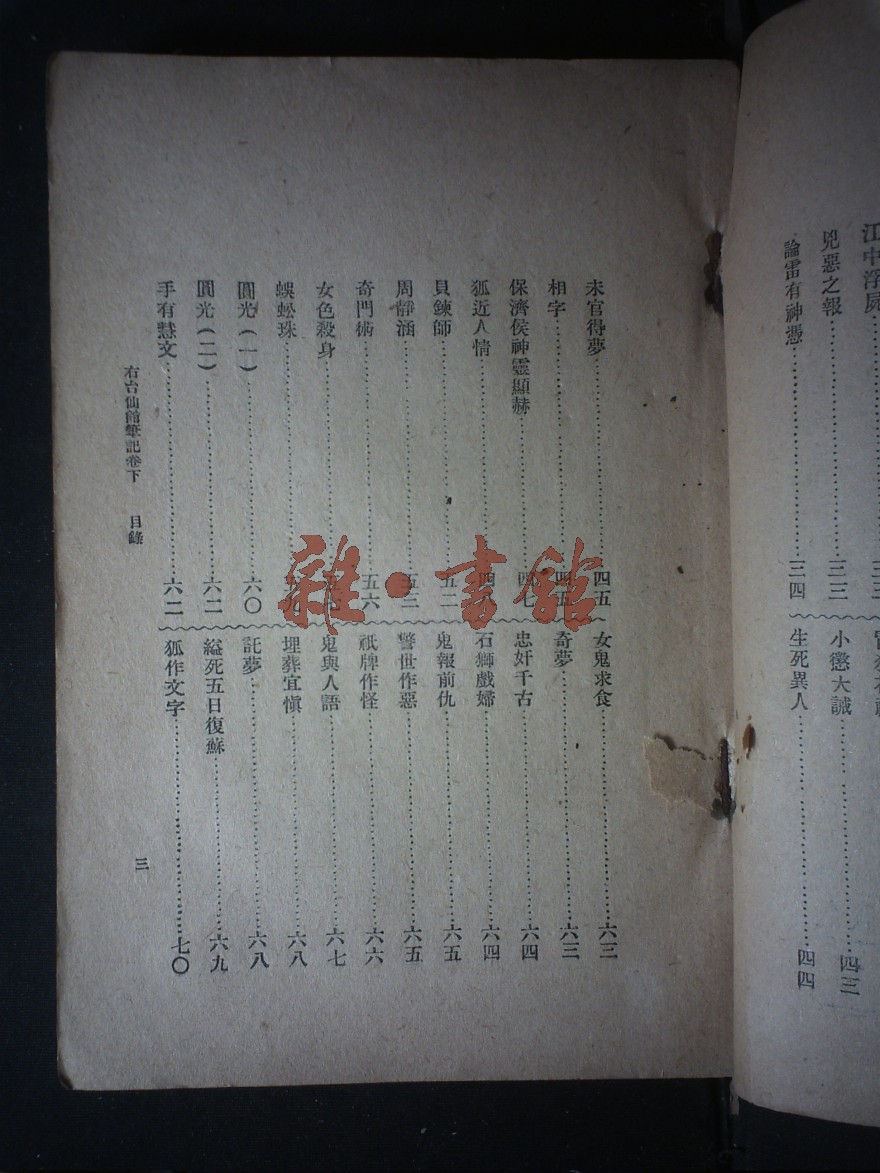 江中浮屍
兇惡之報⋯⋯三三
小懲大誡⋯⋯四三
論雷有神憑⋯⋯三四
生死異人⋯⋯四四
未官得夢⋯⋯四五
相字⋯⋯四五
保濟侯神靈顯赫⋯⋯四七
狐近人情⋯⋯四
貝鍊師⋯⋯五二
周靜涵⋯⋯五三
奇門術⋯⋯五六
女色殺身⋯⋯五
蜈蚣珠⋯⋯五九
圓光(一)⋯⋯六〇
圓光(二)⋯⋯六二
手有慧文⋯⋯六二
女鬼求食⋯⋯六三
奇夢⋯⋯六三
忠奸千古⋯⋯六四
石獅戲婦⋯⋯六四
鬼報前仇⋯⋯六五
警世作惡⋯⋯六五
祇牌作怪⋯⋯六六
鬼與人語⋯⋯六七
埋葬宜愼⋯⋯六八
託夢⋯⋯六八
縊死五日復蘇⋯⋯六九
狐作文字⋯⋯七〇
右台仙館筆記卷下 目錄
三
雜·書館